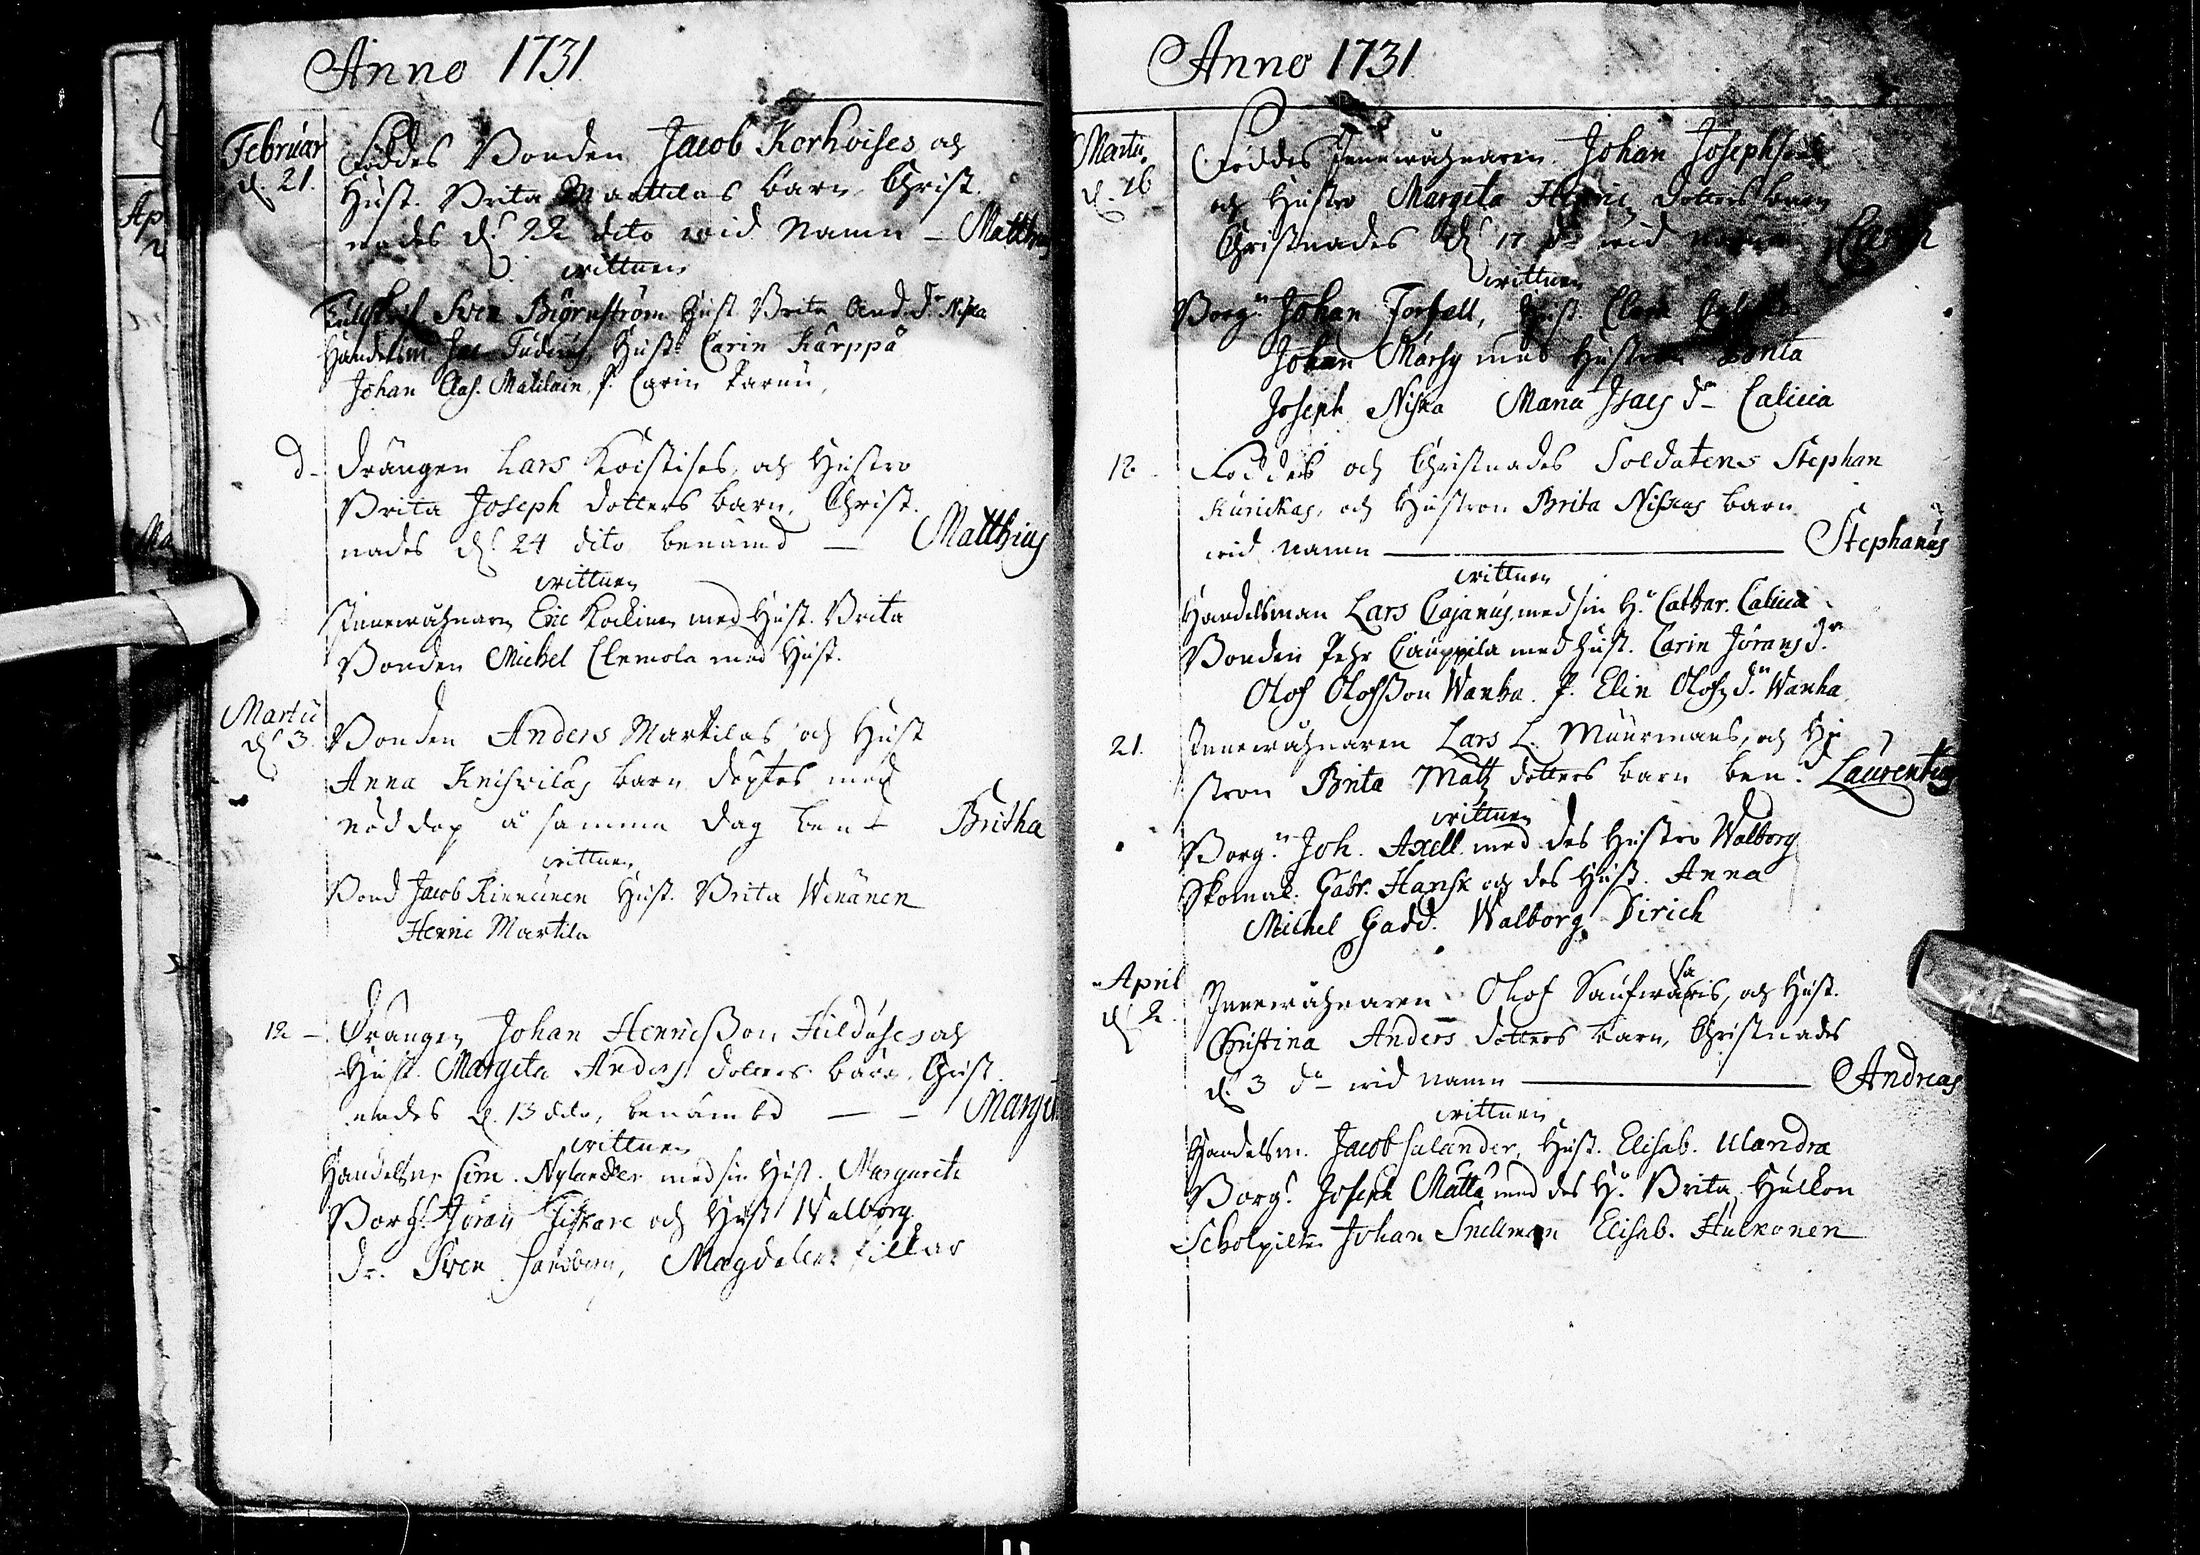 Anno 1731
Februar Föddes Bonden Jacob Korhoises och
d. 21. Hust. Brita Marttilas barn Christ
nades d. 22 dito wid Namn – Matthias
wittnen
Sven Biörnström Hust. Brita And. dr Niska
Handelsm. Jac. Tuderus, Hust. Carin Kärppä
Johan Clas. Matilain, P. Carin
d – Drängen Lars Koistises, och Hustro
Brita Joseph dotters barn, Christ
nades d. 24 dito benämd – Matthias
wittnen
Innewåhnaren Eric med Hust. Brita
Bonden Michel Clemola med Hust.
Martii Bonden Anders Martilas och Hust
d. 3. Anna Knihvilas barn döptes med
nöddop å samma dag ben – Britha
wittnen
Bond Jacob Kinnunen Hust. Brita Wenänen
Henric Martila
12 – Drängen Johan Henricßon Huldases och
Hust. Margeta Anders dotters barn, Christ
nades d. 13 dito, benämbd – – Marget
wittnen
Handelsm. Sim. Nylander med sin Hust. Margareta
Borg. Jöran Fiskare och Hust. Walborg
Dr. Sven Sandberg, Magdalena
Anno 1731
Martii. Föddes Innewåhnaren Johan Josephsons
d. 16 och Hustro Margeta Henric dotters barn
Christnades d. 17 do wid namn Carin
wittnen
Borg.n Johan Forsell, Hust. Clara
Johan Märhy med Hustron
Joseph Niska Maria Isacs dr Calicia
12. Föddes och Christnades Soldatens Stephan
Kurickas, och Hustron Brita Niskas barn
wid namn – Stephanus
wittnen
Handelsman Lars Cajanus med sin H.o Cathar. Calicia
Bonden Pehr Cauppila med Hust. Carin Jörans dr
Olof Olofßon Wanha P. Elin Olofs dr Wanha
21. Innewåhnaren Lars L. Muurmans, och Hu
stron Brita Matz dotters barn ben. Laurentius
wittnen
Borg.n Joh. Axell med des Hustro Walborg
Skomak. Gabr. Hansk och des Hust. Anna
Michel Gadd. Walborg Dirich
April Innewåhnaren Olof Saufwaris, och Hust.
d. 2. Christina Anders dotters barn, Christnades
d. 3 do wid namn – Andreas
wittnen
Handelsm. Jacob Salander, Hust. Elisab. Ulandra
Borg. Joseph Matts med des H.o Brita Hulkon
Scholpilten Johan Snellman Elisab. Hulkonen